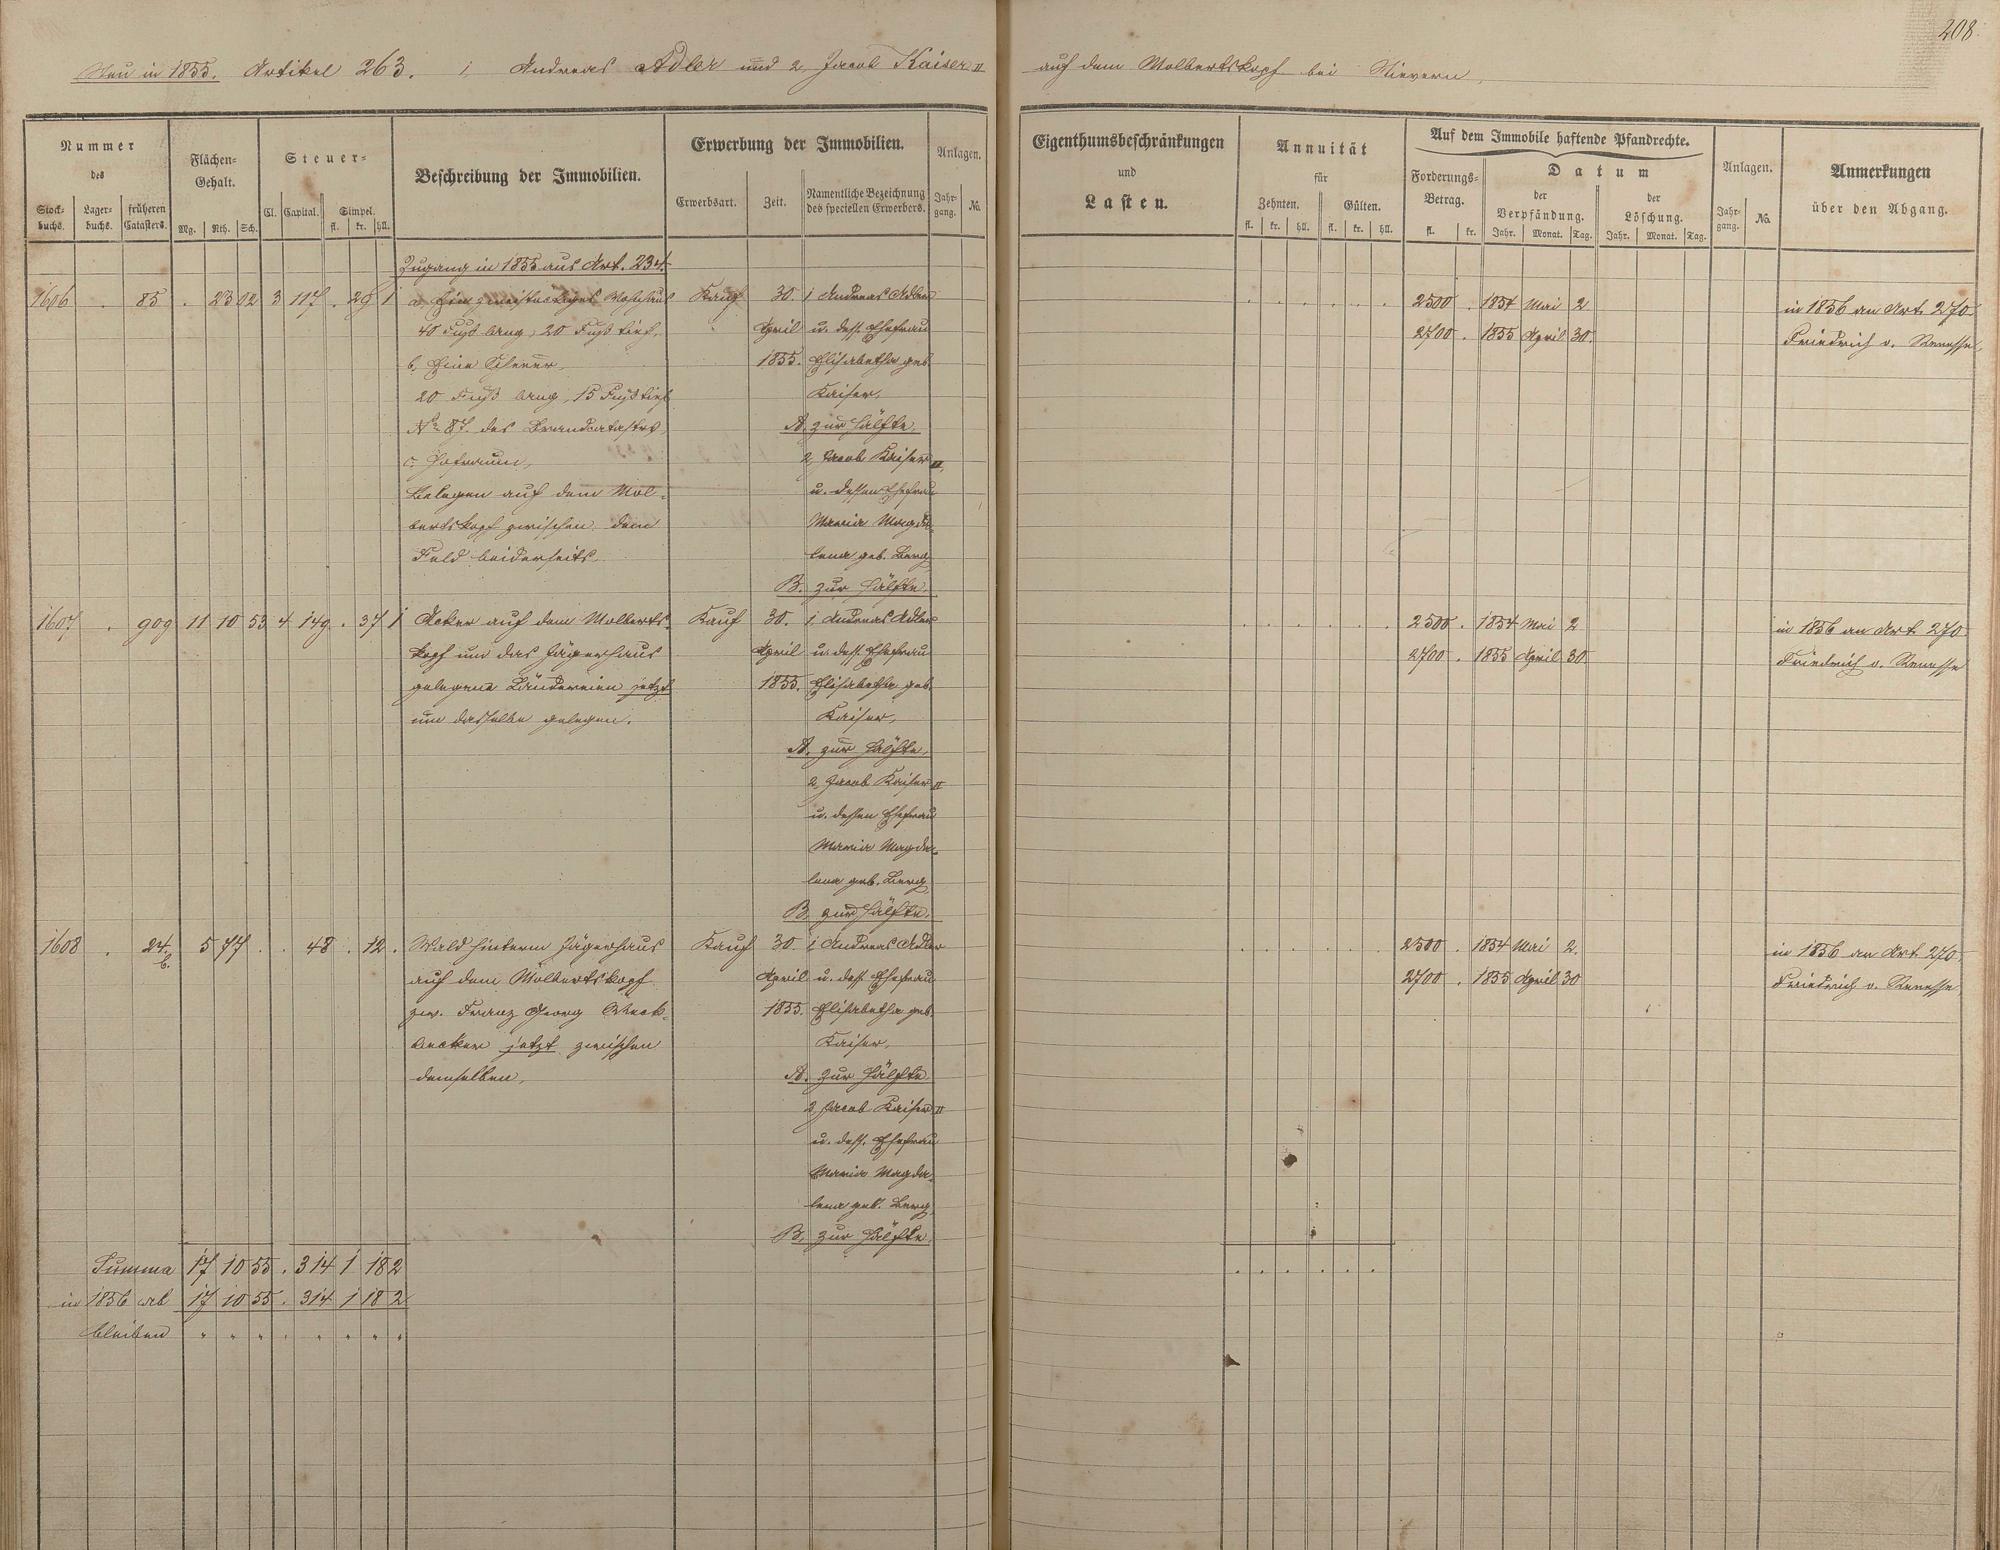 208.
Neu in 1855. Artikel 263. 1, Andreas Adler und 2, Jacob Kaiser II auf dem Molbertskopf bei Nievern.
Nummer
des
Stock-
buchs.
Lager-
buchs.
früheren
Catasters.
Flächen-
Gehalt.
Mg. Rth. Sch.
Steuer-
Cl. Capital. Simpel.
fl. kr. hll.
Beschreibung der Immobilien.
Erwerbung der Immobilien.
Erwerbsart. Zeit. Namentliche Bezeichnung
des speciellen Erwerbers.
Anlagen.
Jahr-
gang. No.
Eigenthumsbeschränkungen
und
Lasten.
Annuität
für
Zehnten. Gülten.
fl. kr. hll. fl. kr. hll.
Auf dem Immobile haftende Pfandrechte.
Forderungs-
Betrag.
fl. kr.
Datum
der
Verpfändung.
Jahr. Monat. Tag.
der
Löschung.
Jahr. Monat. Tag.
Anlagen.
Jahr-
gang. No.
Anmerkungen
über den Abgang.
Zugang in 1855 aus Art. 234.
1606 . 85 . 23 02 3 117 . 29 1 a. Ein zweistockiges Wohnhaus Kauf 30. 1 Andreas Adler . . . . . . 2500 . 1854 Mai 2 in 1856 an Art. 270
40 Fuß lang, 20 Fuß tief, April u. dess. Ehefrau 2700 . 1855 April 30. Friedrich v. Renesse,
b. Eine Scheuer, 1855. Elisabetha geb.
20 Fuß lang, 15 Fuß tief Kaiser,
No 87. des Brandcatasters, A. zur Hälfte,
c. Hofraum, 2, Jacob Kaiser II,
belegen auf dem Mol-
u. dessen Ehefrau
bertskopf zwischen dem Maria Magda-
Feld beiderseits. lena geb. Berg
B. zur Hälfte.
1607 . 909 11 10 53 4 149 . 37 1 Acker auf dem Molberts- Kauf 30. 1 Andreas Adler . . . . . . 2500 . 1854 Mai 2 in 1856 an Art. 270
kopf um das Jägerhaus April u. dess. Ehefrau 2700 . 1855 April 30. Friedrich v. Renesse
gelegene Ländereien jetzt 1855. Elisabetha geb.
um dasselbe gelegen. Kaiser,
A. zur Hälfte,
2, Jacob Kaiser II
u. dessen Ehefrau
Maria Magda-
lena geb. Berg,
B. zur Hälfte.
1608 . 24. 5 77 . . 48 . 12 . Wald hinterm Jägerhaus Kauf 30. 1 Andreas Adler . . . . . . 2500 . 1854 Mai 2. in 1856 an Art. 270
b. auf dem Molbertskopf April u. dess. Ehefrau 2700 . 1855 April 30 Friedrich v. Renesse,
zw. Franz Georg Weck- 1855. Elisabetha geb.
becker jetzt zwischen Kaiser,
demselben, A. zur Hälfte.
2 Jacob Kaiser II
u. dess. Ehefrau
Maria Magda-
lena geb. Berg,
B. zur Hälfte.
Summa 17 10 55 . 314 1 18 2 . . . . . .
in 1856 ab 17 10 55 . 314 1 18 2
bleiben " " " . " " " "